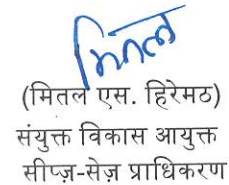 मितल
(मितल एस. हिरेमठ)
संयुक्त विकास आयुक्त
सीप्ज़-सेज़ प्राधिकरण